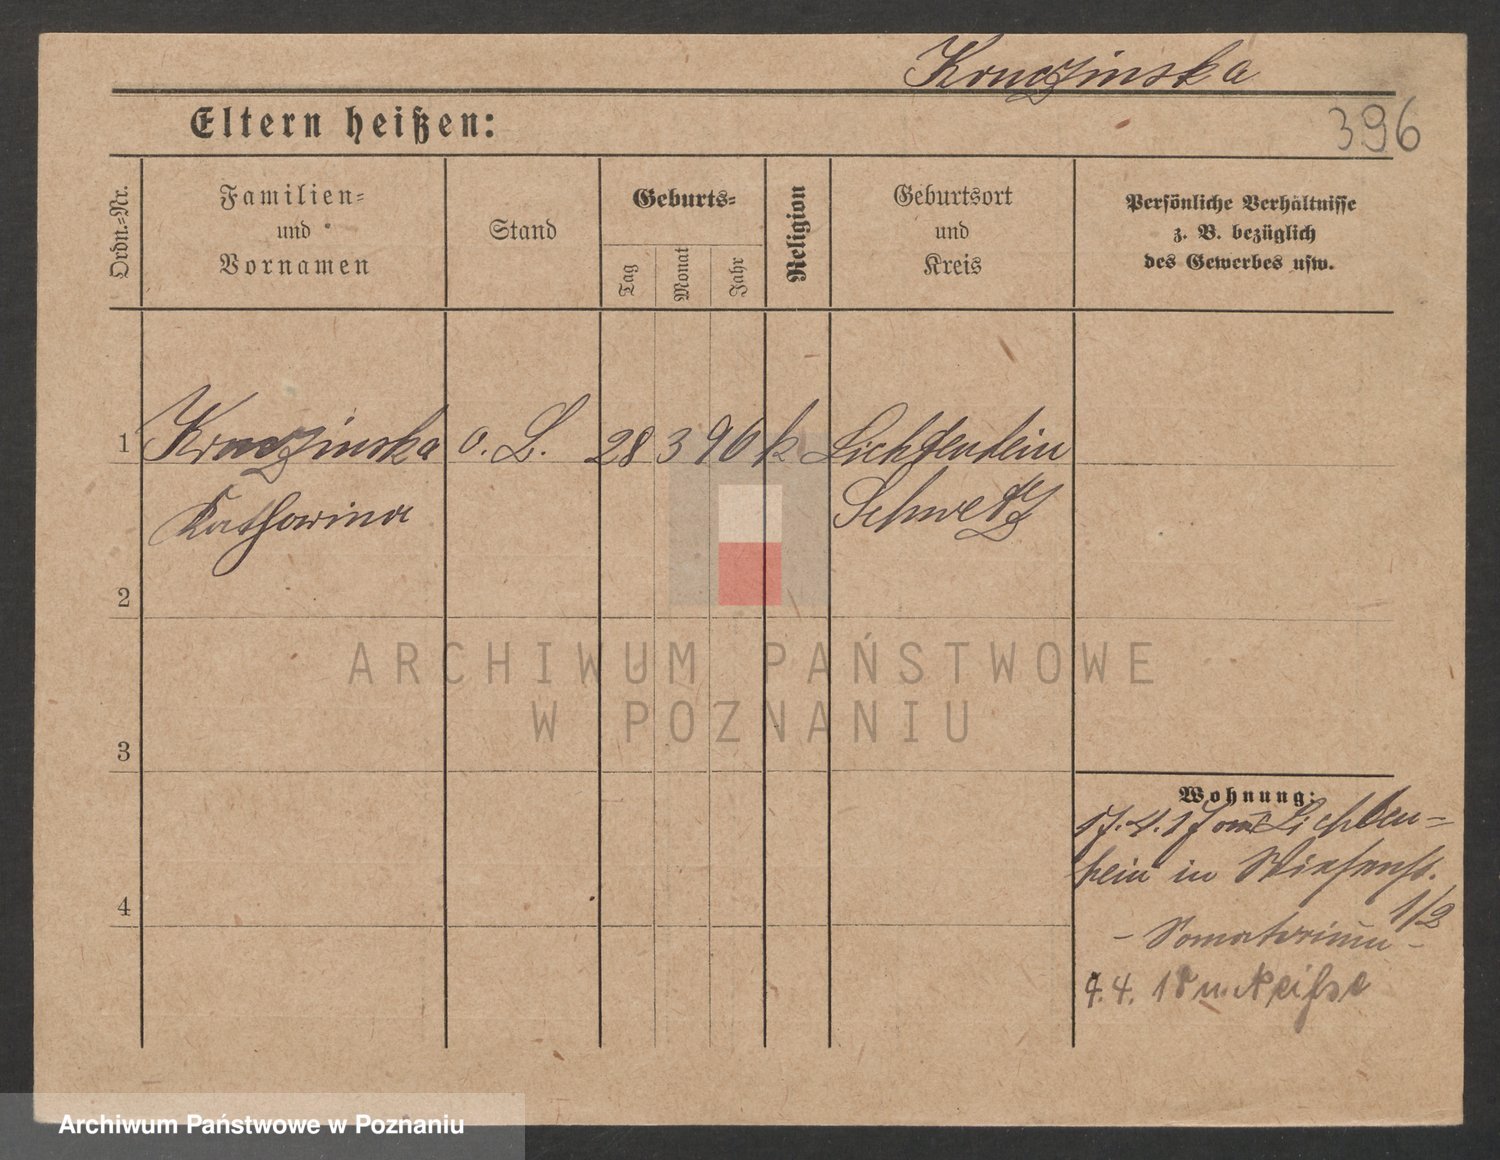 Kruczinska
396
Eltern heißen:
Ordn.-Nr.
Familien-
und
Vornamen
Stand
Geburts-
Tag
Monat
Jahr
Religion
Geburtsort
und
Kreis
Persönliche Verhältnisse
z. B. bezüglich
des Gewerbes usw.
1
Kruczinska o. L. 28 3 96 k Lichtenhein
Katharina Schwetz
2
3
4
Wohnung:
17. 4. 17 von Lichten-
hein in
1/2
- Sanatorium -
4. 18 n. Neisse
ARCHIWUM PAŃSTWOWE
W POZNANIU
Archiwum Państwowe w Poznaniu